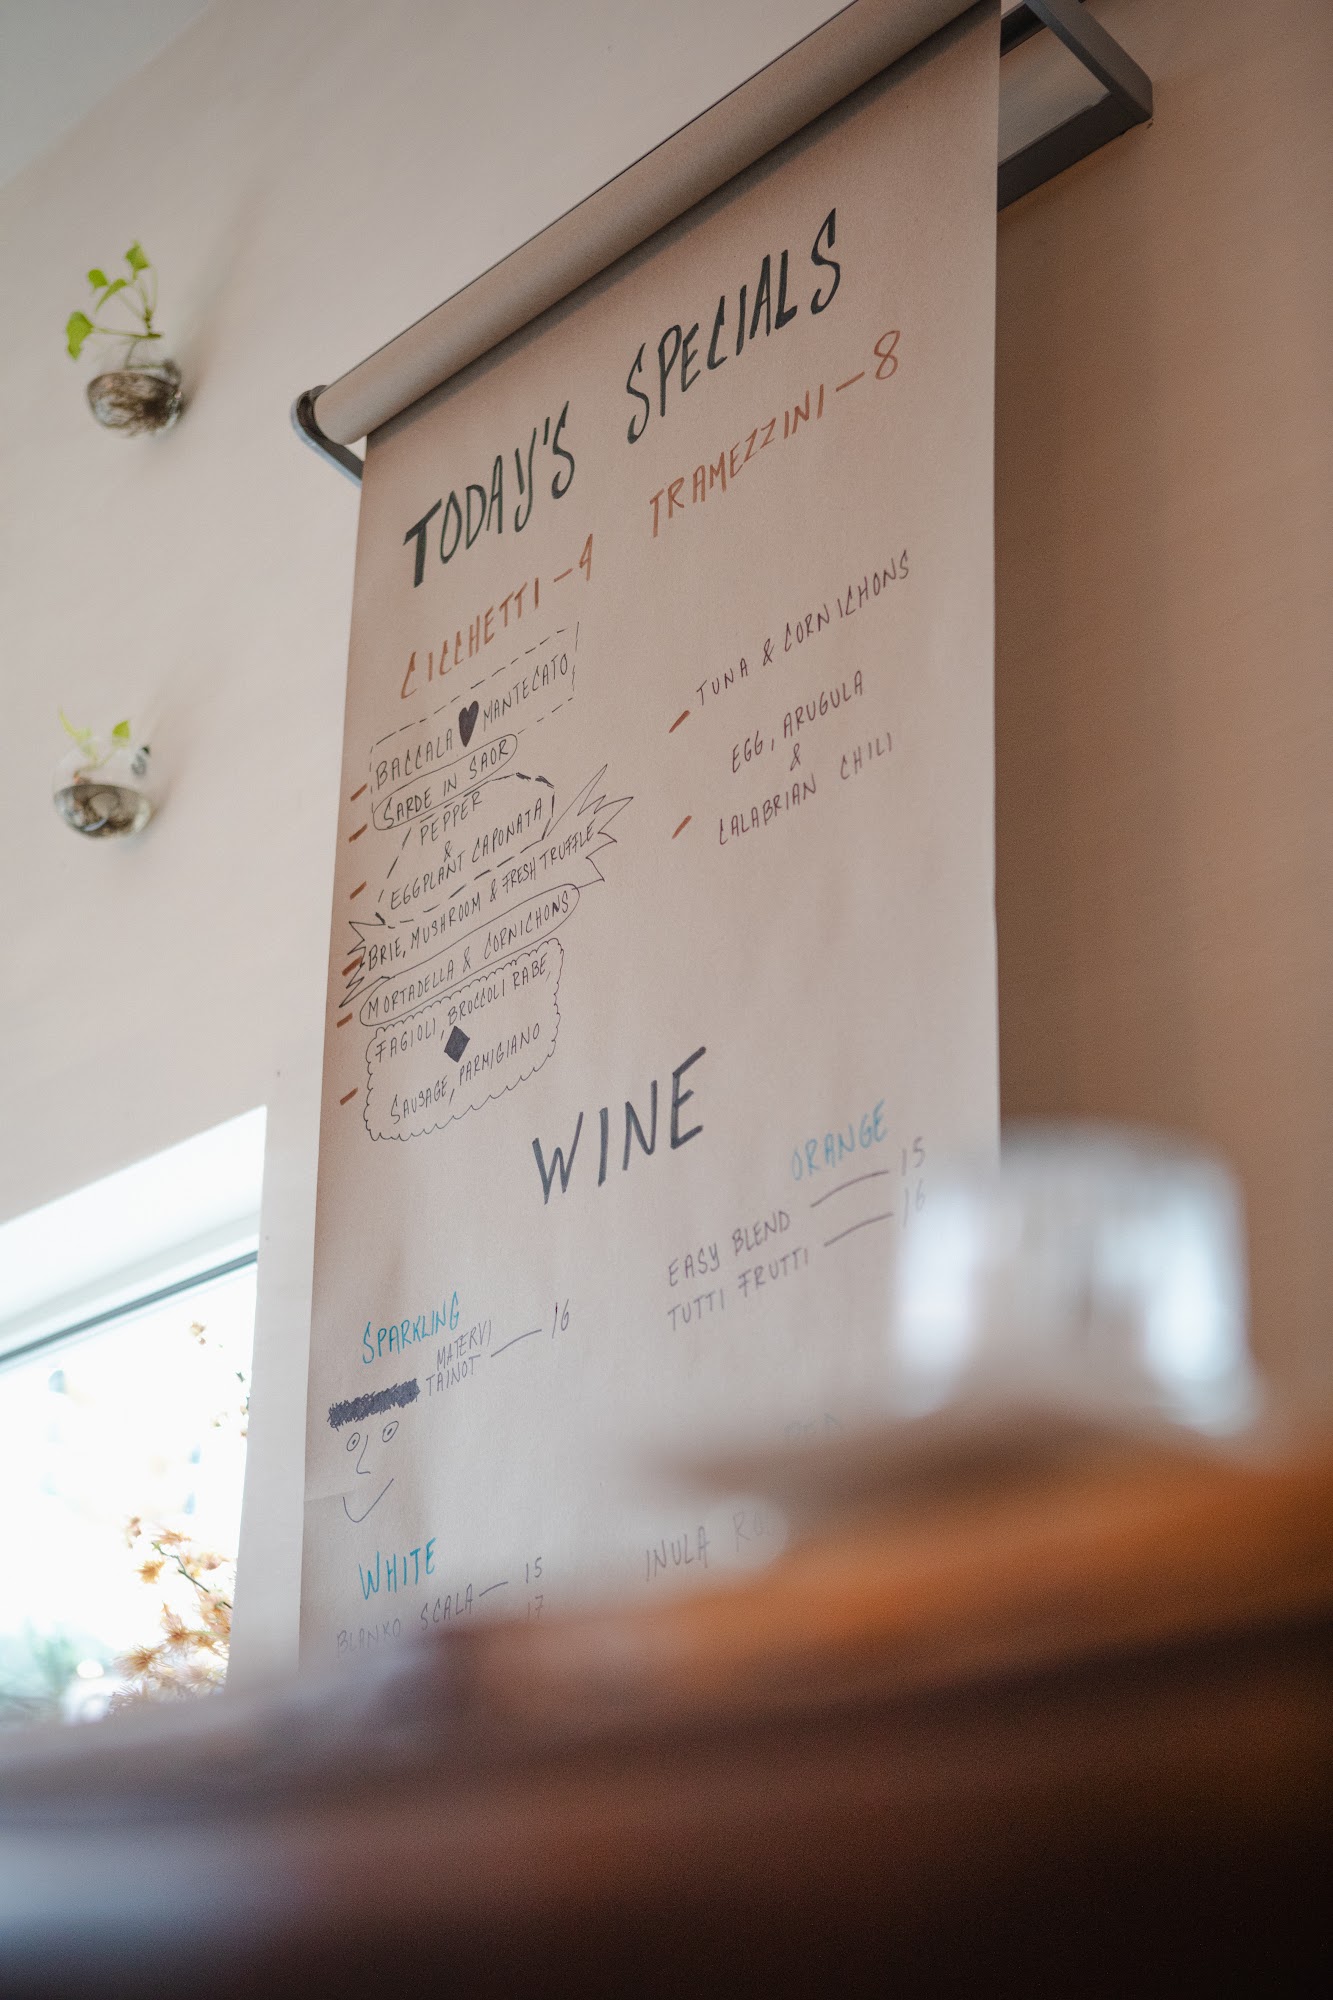 TODAY'S SPECIALS
CICCHETTI - 4
BACCALA MANTECATO
SARDE IN SAOR
PEPPER
&
EGGPLANT CAPONATA
BRIE, MUSHROOM & FRESH TRUFFLE
MORTADELLA & CORNICHONS
FAGIOLI, BROCCOLI RABE,
SAUSAGE, PARMIGIANO
TRAMEZZINI - 8
- TUNA & CORNICHONS
EGG, ARUGULA
&
- CALABRIAN CHILI
WINE
SPARKLING
MATERVI
TAINOT — 16
WHITE
BLANKO SCALA — 15
17
ORANGE
EASY BLEND — 15
TUTTI FRUTTI — 16
INULA